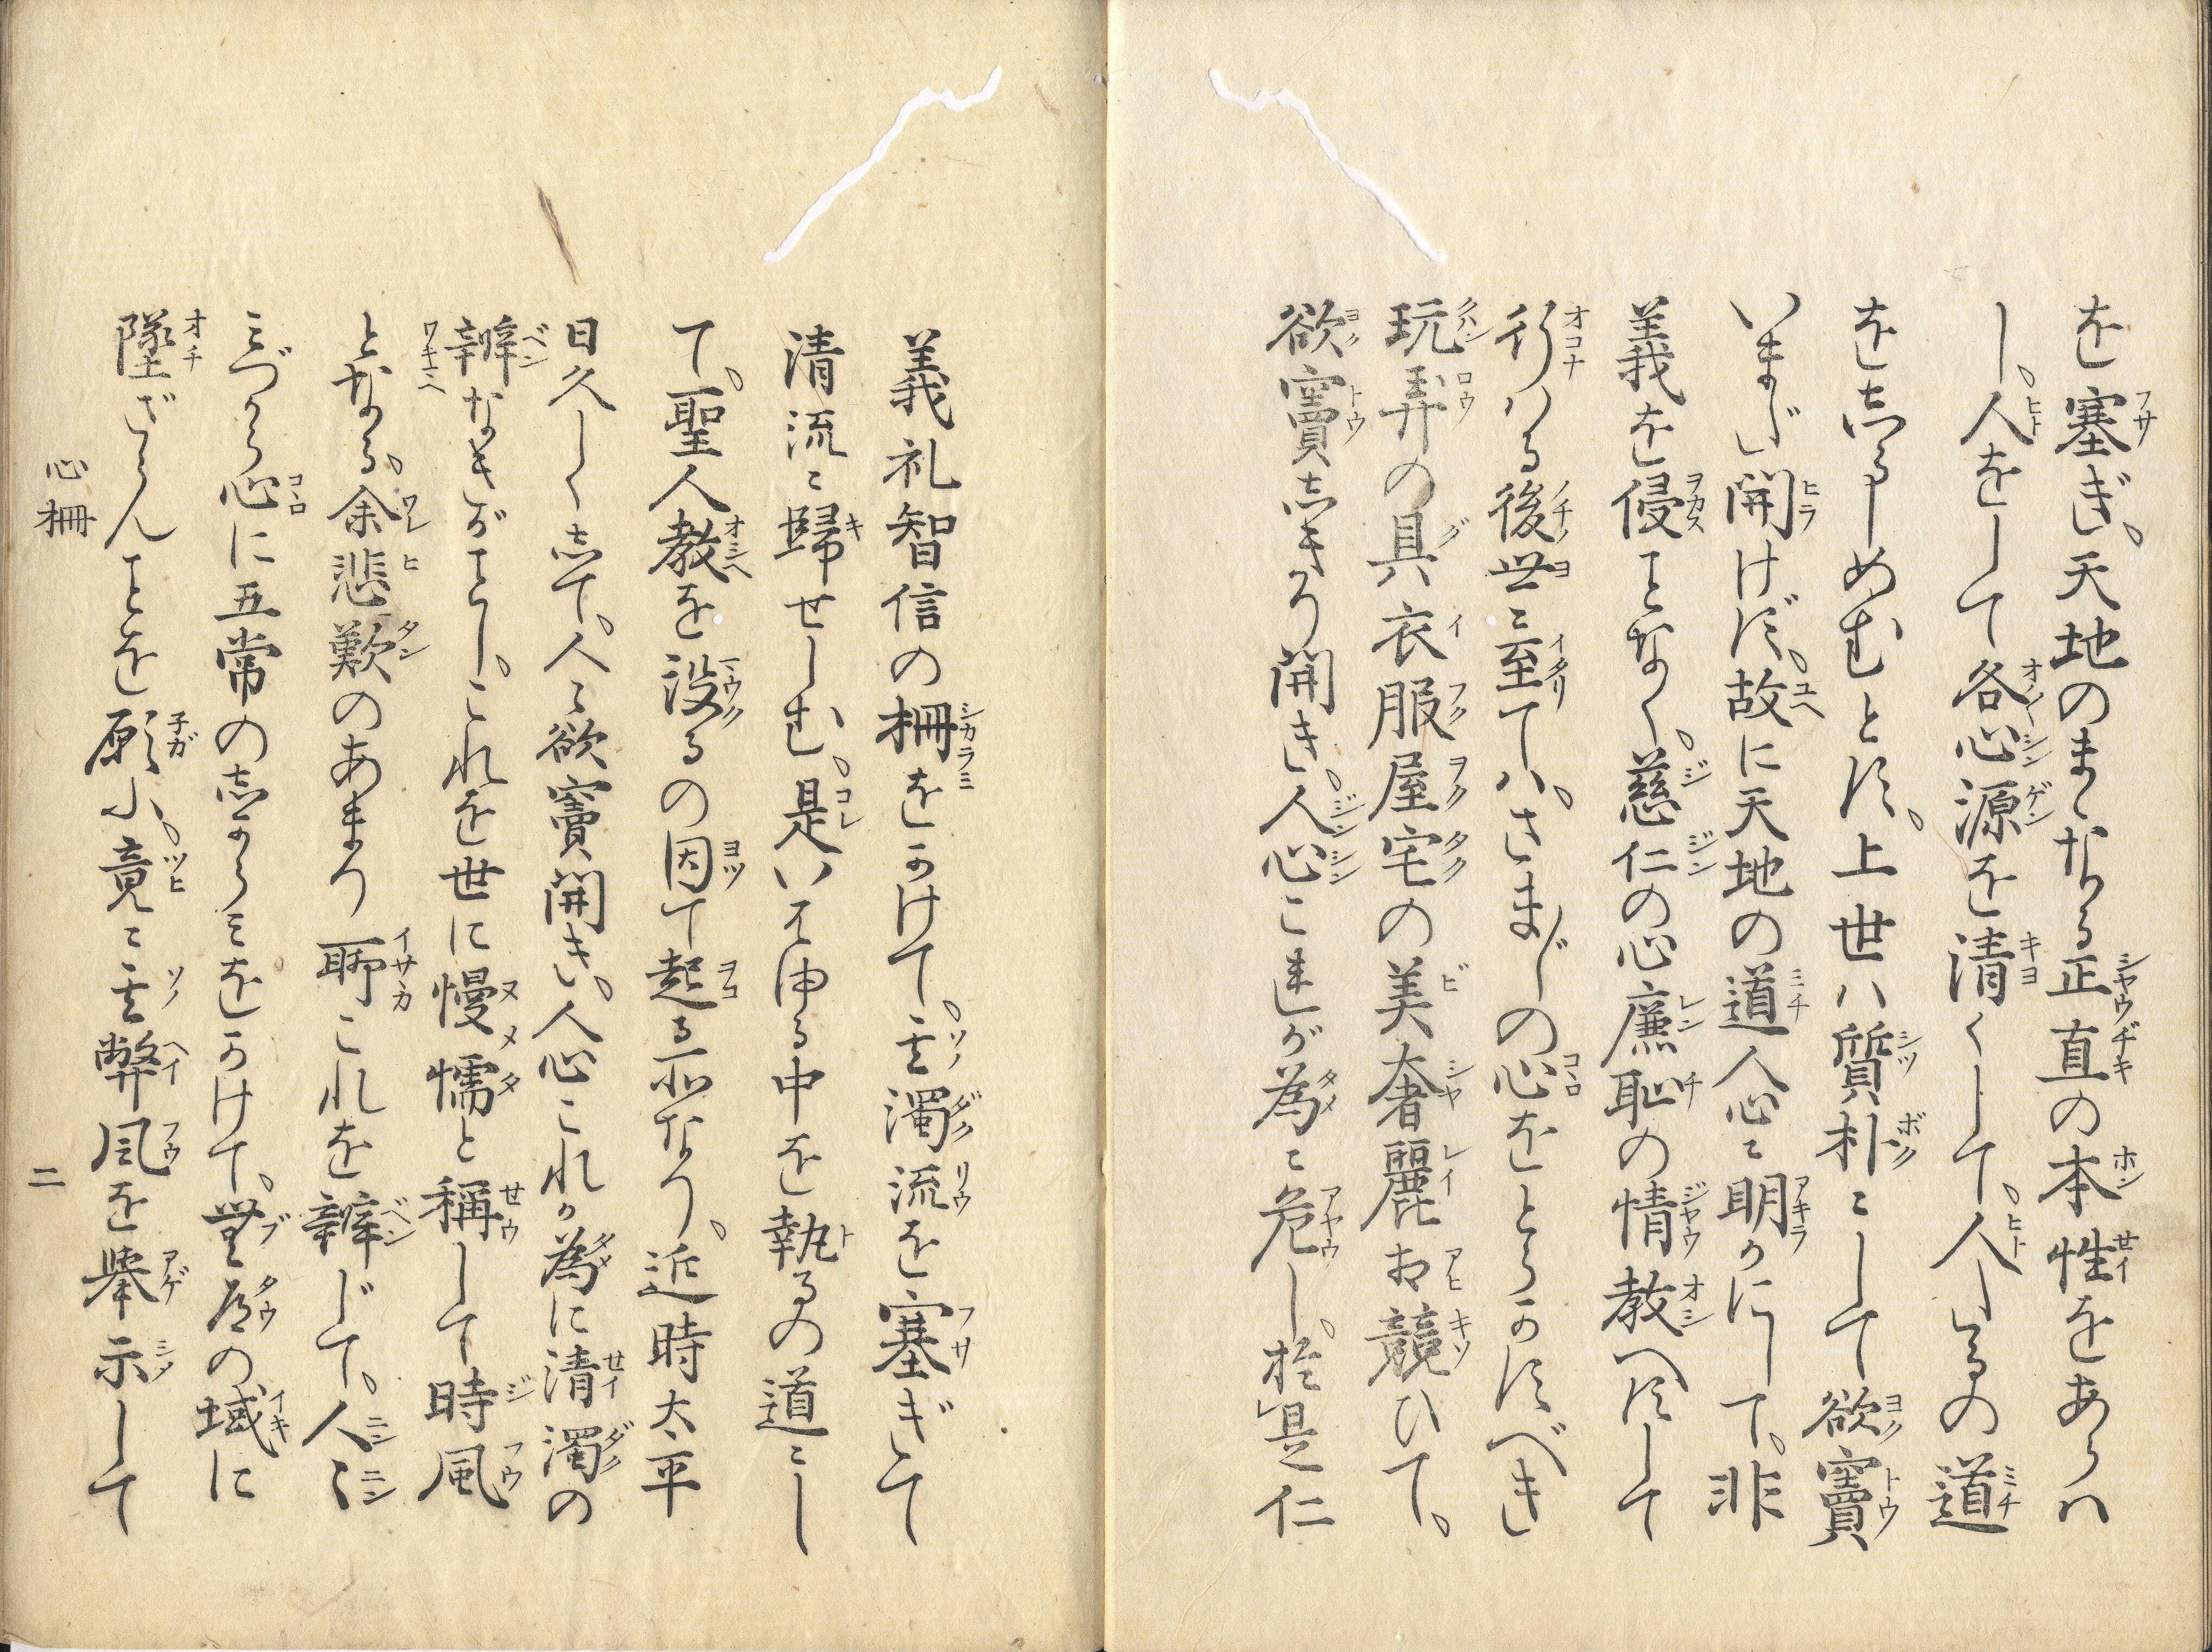 を塞ぎ、天地のまゝなる正直の本性をあらハ
し、人をして各心源を清くして、人〻たるの道
を志らしめむとす、上世ハ質朴にして欲竇
いまだ開けず、故に天地の道人心に明かにして、非
義を侵ことなく、慈仁の心廉恥の情教へずして
行ハる後世に至てハ、さまざまの心をとらかすべき
玩弄の具衣服屋宅の美奢麗お競ひて、
欲竇志きり開き、人心これが為に危し、於是仁
義礼智信の柵をかけて、其濁流を塞ぎて
清流に歸せしむ、是いはゆる中を執るの道にし
て、聖人教を設るの因て起る所なり、近時太平
日久しく志て、人に欲竇開き、人心これか為に清濁の
辧なきがごとし、これを世に慢懦と稱して時風
となる、余悲歎のあまり聊これを辧じて、人〻
みづから心に五常の志がらミをかけて、無道の域に
墜ざらんことを願ふ、竟に其弊風を舉示して
心柵
二